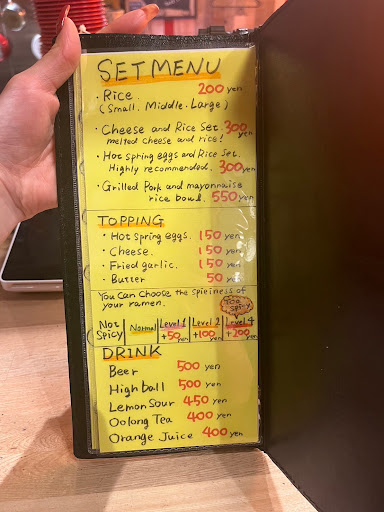 SET MENU
・Rice. 200 yen
(Small. Middle. Large)
・Cheese and Rice Set. 300 yen
melted cheese and rice!
・Hot spring eggs and Rice Set.
Highly recommended. 300 yen
・Grilled Pork and mayonnaise
rice bowl. 550 yen
TOPPING
・Hot Spring eggs. 150 yen
・Cheese. 150 yen
・Fried garlic. 150 yen
・Butter 50 yen
You can choose the spieiness of
your ramen.
Not Spicy Normal Level 1 +50 yen Level 2 +100 yen Level 4 +200 yen
DRINK
Beer 500 yen
Highball 500 yen
Lemon Sour 450 yen
Oolong Tea 400 yen
Orange Juice 400 yen